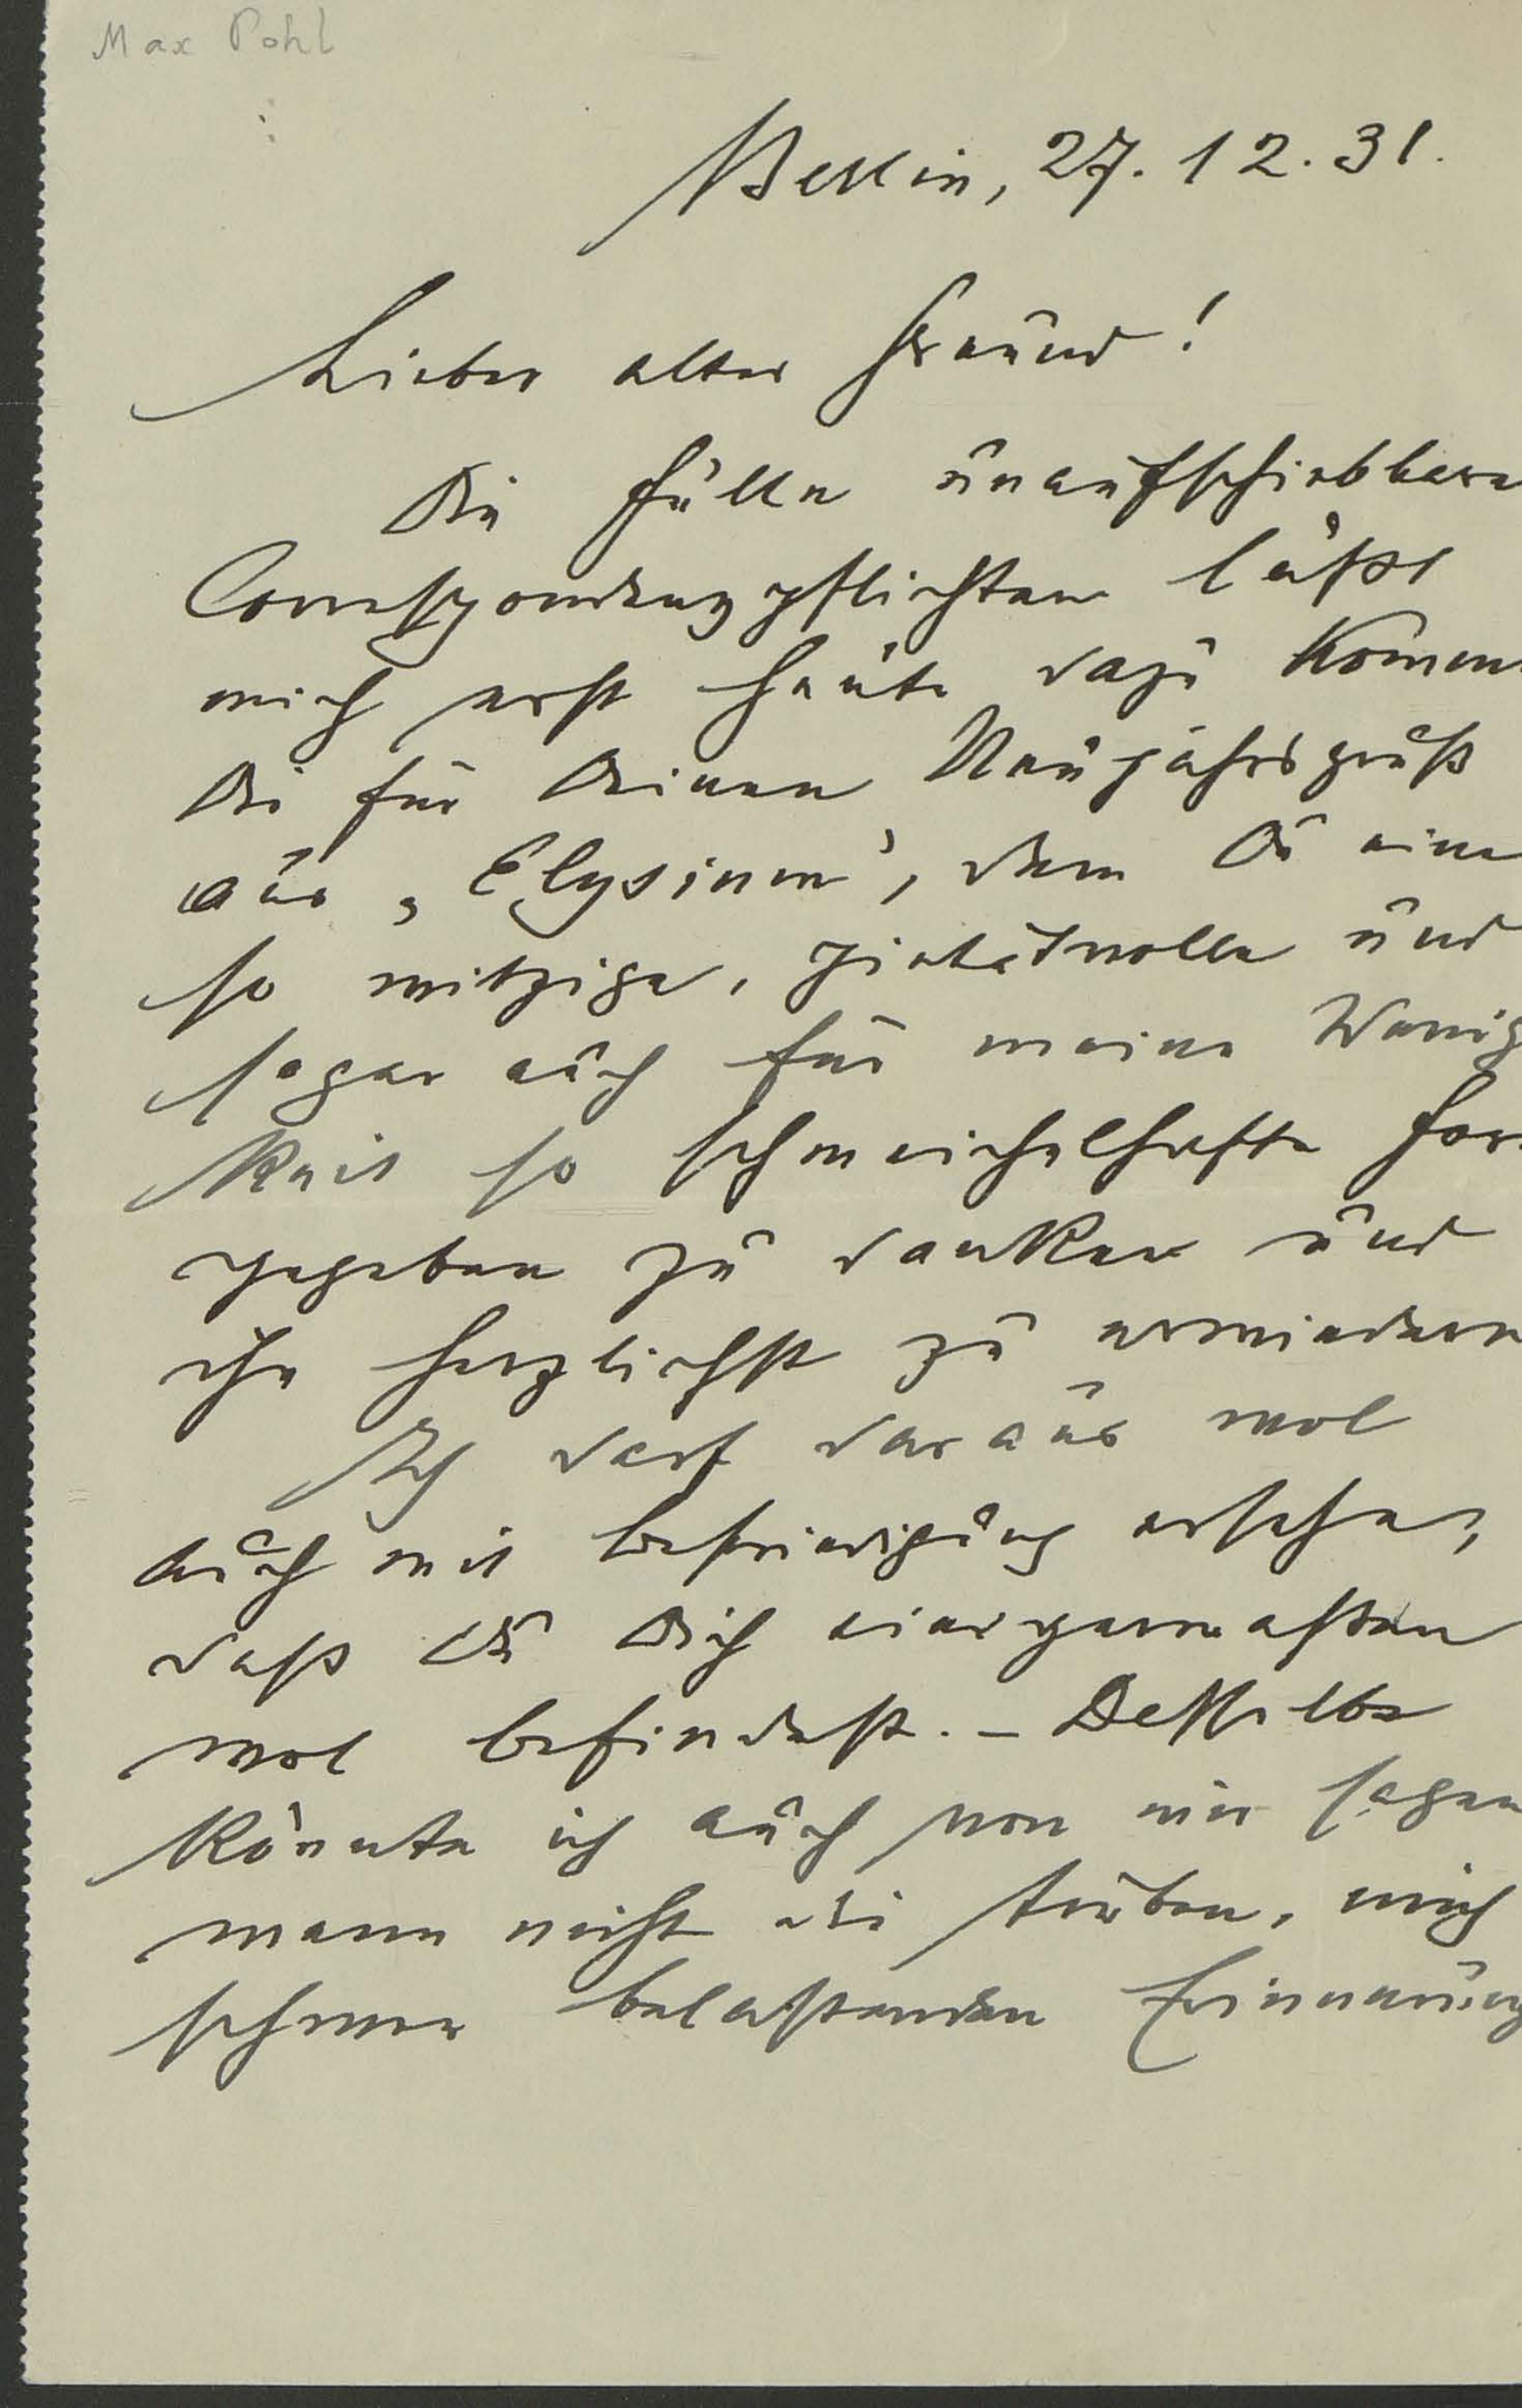 Max Pohl
Berlin, 27. 12. 31.
Lieber alter Freund!
Die Fülle unaufschiebbare
Correspondenzpflichten läßt
mich erst heute dazu komme
Dir für Deinen Neujahrsgruß
aus „Elysium", dem Du eine
so witzige, pietätvolle und
sogar auch für meine Wenig
keit so schmeichelhafte For
gegeben zu danken und
ihn herzlichst zu erwiedern
Ich darf daraus wol
auch mit Befriedigung ersehen,
daß Du Dich einigermaßen
wol befindest. – Desselbe
könnte ich auch von mir sagen
wenn nicht die trüben, mich
schwer belastenden Erinnerung